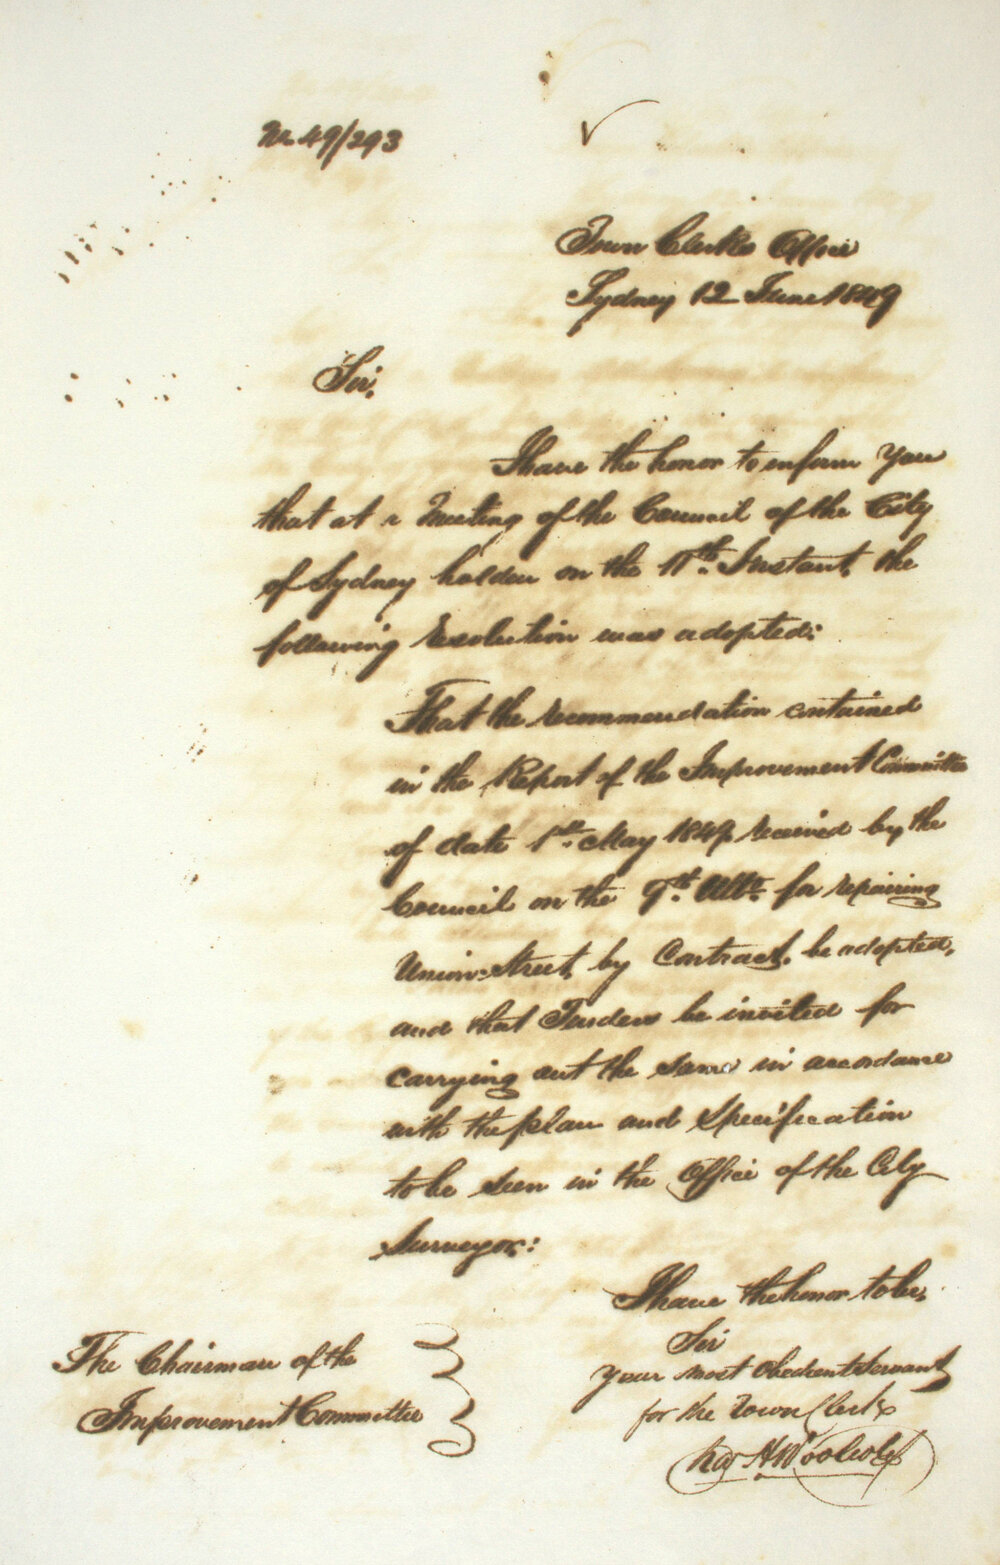 No. 49/293
Town Clerks Office
Sydney 12 June 1849
Sir,
I have the honor to inform You
that at a Meeting of the Council of the City
of Sydney holden on the 11th. Instant, the
following Resolution was adopted:
That the recommendation contained
in the Report of the Improvement Committee
of date 1st. May 1849, received by the
Council on the 9th. Ulto. for repairing
Union Street, by Contract, be adopted,
and that Tenders be invited for
carrying out the same in accordance
with the plan and Specification
to be seen in the Office of the City
Surveyor:
I have the honor to be,
Sir
Your most Obedient Servant
for the Town Clerk
Chas H Woolcott
The Chairman of the
Improvement Committee